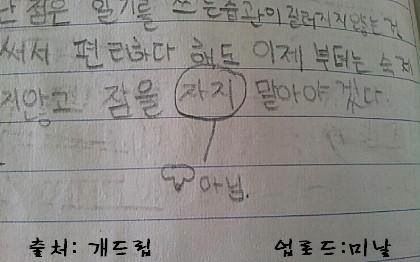 점은 일기를 쓰는 습관이 길러지지 않는 것
써서 편리하다 해도 이제 부터는 숙제
지않고 잠을 자지 말아야 겠다.
아님.
출처: 개드립 업로드:미날